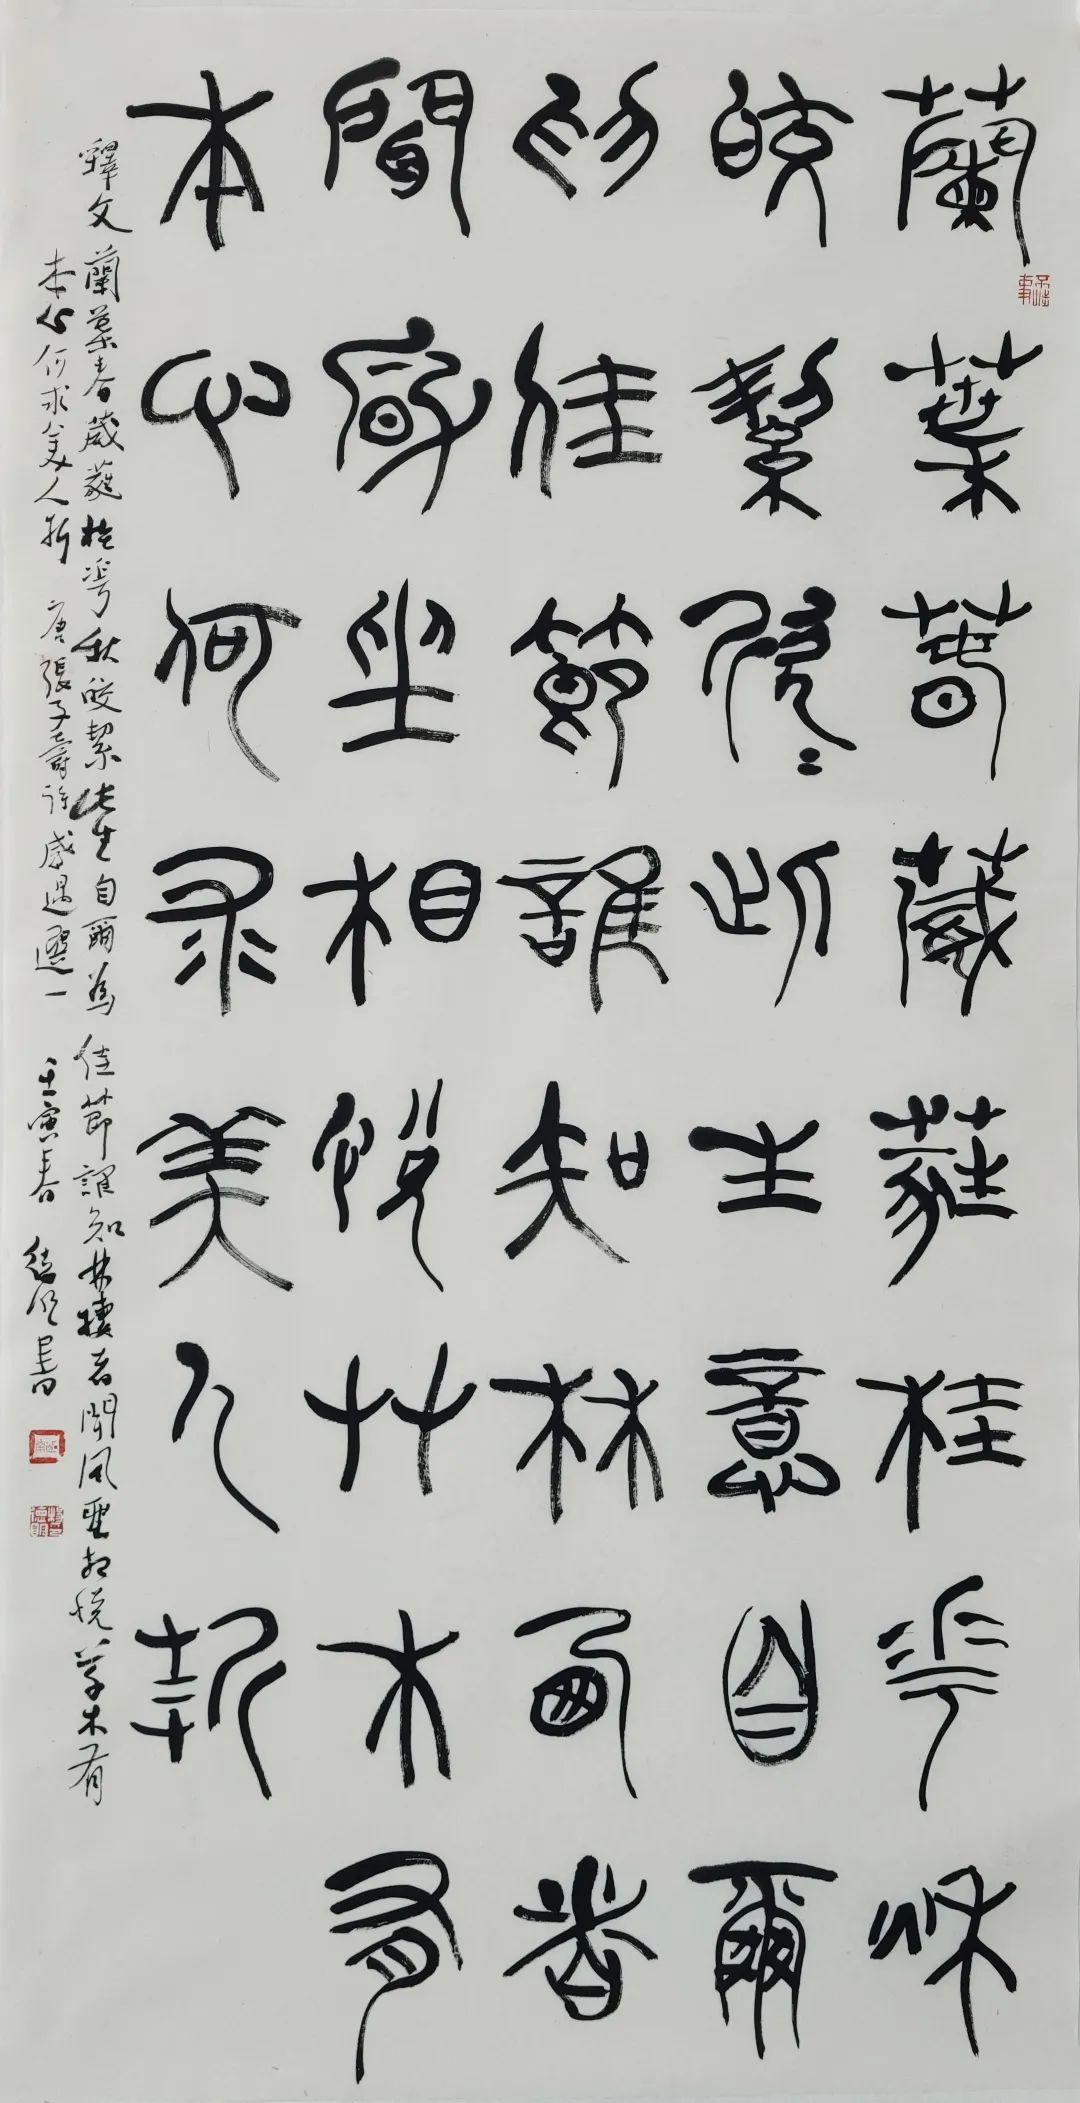 蘭葉萅葳蕤桂華秋
皎絜僊=此生意自爾
為佳節誰知林西者
聞風坐相悅艸木有
本心何求美人折
釋文蘭葉春葳蕤桂華秋皎絜此生自爾為佳節誰知林棲者聞風坐相悅草木有
本心何求美人折 唐張子壽詩感遇選一 壬寅春 德明書